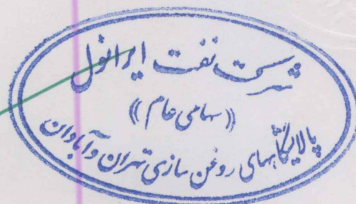 شرکت نفت ایرانول
((سهامی عام))
پالایشگاههای روغن سازی تهران و آبادان